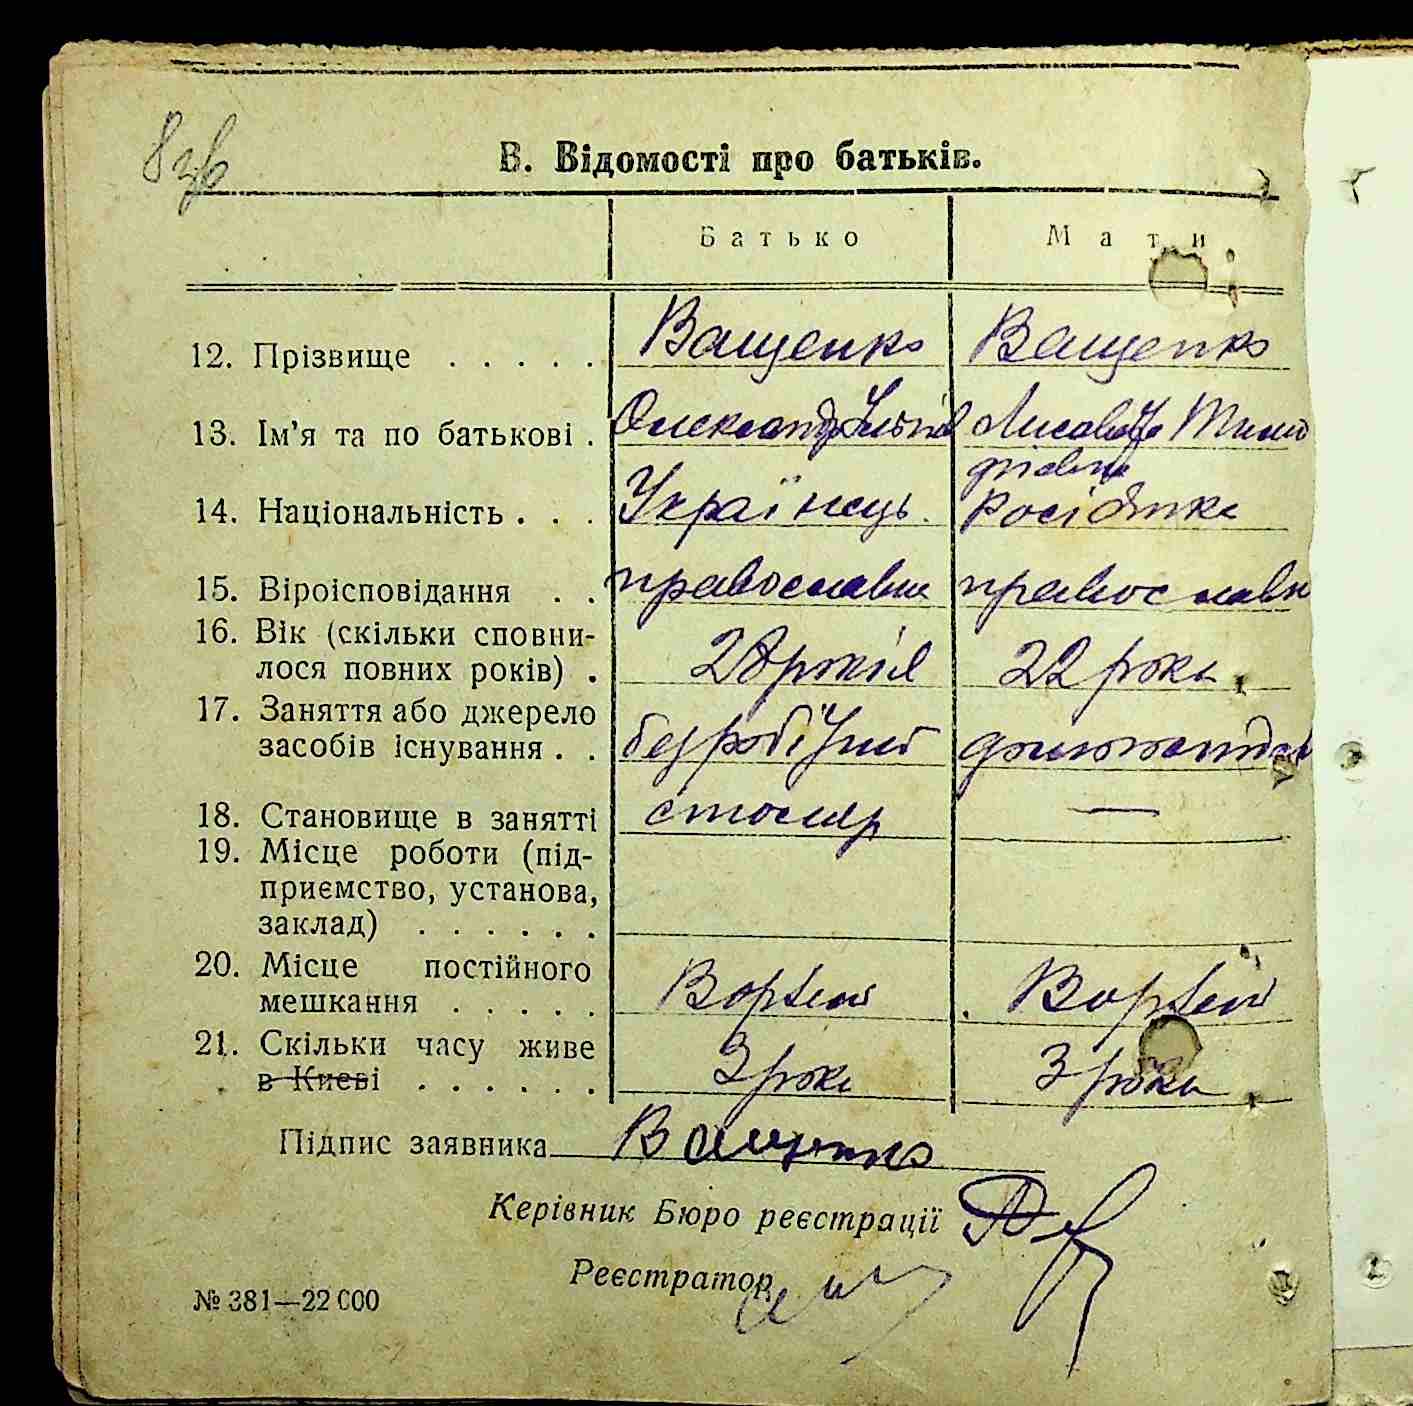 8 зв
В. Відомості про батьків.
Батько Мати
12. Прізвище . . . . . Ващенко Ващенко
13. Ім’я та по батькові . Олександр Лисавета Тимо
фіївна
14. Національність . . . Українець Росіянка
15. Віроісповідання . . православна православн
16. Вік (скільки сповни-
лося повних років) . 28 років 22 роки
17. Заняття або джерело
засобів існування . . безробітний
18. Становище в занятті столяр —
19. Місце роботи (під-
приємство, установа,
заклад) . . . . . .
20. Місце постійного
мешкання . . . . . Ворзель Ворзель
21. Скільки часу живе
в Києві . . . . . . 3 роки 3 роки
Підпис заявника Ващенко
Керівник Бюро реєстрації
Реєстратор
№ 381—22 000